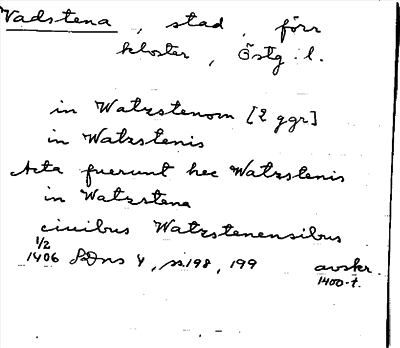 Vadstena, stad, förr
kloster, Östg. l.
in Watzstenom [2 ggr]
in Watzstenis
Acta fuerunt hec Watzstenis
in Watzstena
ciuibus Watzstenensibus
1/2
1406 SDns 4, s. 198, 199 avskr.
1400-t.